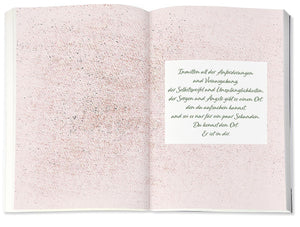 Inmitten all der Anforderungen
und Verausgabung,
der Selbstzweifel und Unzulänglichkeiten,
der Sorgen und Ängste gibt es einen Ort,
den du aufsuchen kannst,
und sei es nur für ein paar Sekunden.
Du kennst den Ort.
Er ist in dir.